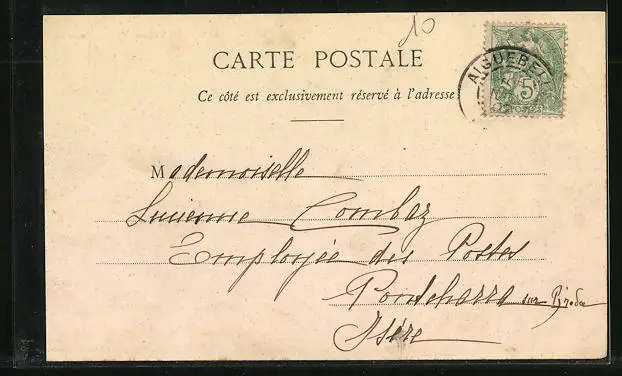 10
CARTE POSTALE
Ce côté est exclusivement réservé à l'adresse
AIGUEBEL
5
POSTES
Mademoiselle
Lucienne Combaz
Employée des Postes
Pontcharra sur
Isère